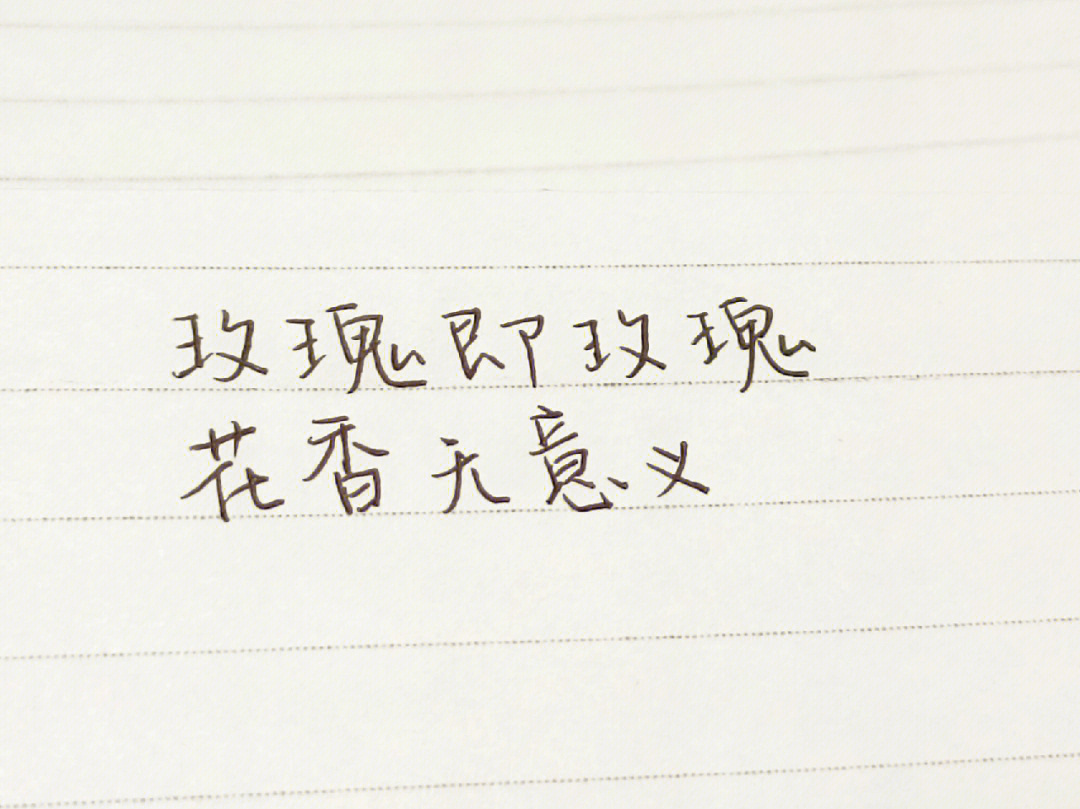 玫瑰即玫瑰
花香无意义